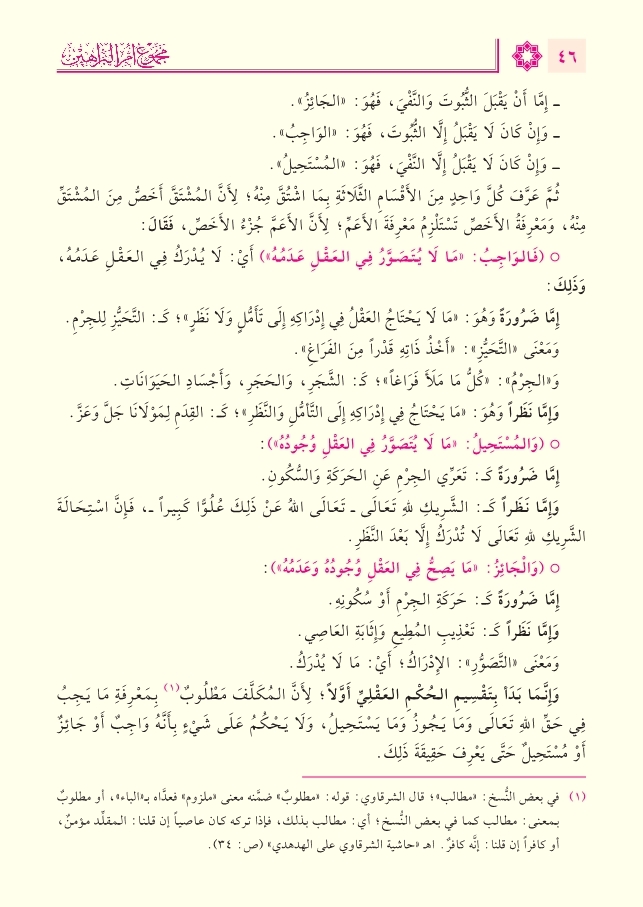 ٤٦
مجموع أم البراهين
ـ إِمَّا أَنْ يَقْبَلَ الثُّبُوتَ وَالنَّفْيَ، فَهُوَ: «الجَائِزُ».
ـ وَإِنْ كَانَ لَا يَقْبَلُ إِلَّا الثُّبُوتَ، فَهُوَ: «الوَاجِبُ».
ـ وَإِنْ كَانَ لَا يَقْبَلُ إِلَّا النَّفْيَ، فَهُوَ: «المُسْتَحِيلُ».
ثُمَّ عَرَّفَ كُلَّ وَاحِدٍ مِنَ الأَقْسَامِ الثَّلَاثَةِ بِمَا اشْتُقَّ مِنْهُ؛ لِأَنَّ المُشْتَقَّ أَخَصُّ مِنَ المُشْتَقِّ
مِنْهُ، وَمَعْرِفَةُ الأَخَصِّ تَسْتَلْزِمُ مَعْرِفَةَ الأَعَمِّ؛ لِأَنَّ الأَعَمَّ جُزْءُ الأَخَصِّ، فَقَالَ:
○ (فَالوَاجِبُ: «مَا لَا يُتَصَوَّرُ فِي العَقْلِ عَدَمُهُ») أَيْ: لَا يُدْرَكُ فِي العَقْلِ عَدَمُهُ،
وَذَلِكَ:
إِمَّا ضَرُورَةً وَهُوَ: «مَا لَا يَحْتَاجُ العَقْلُ فِي إِدْرَاكِهِ إِلَى تَأَمُّلٍ وَلَا نَظَرٍ»؛ كَـ: التَّحَيُّزِ لِلجِرْمِ.
وَمَعْنَى «التَّحَيُّزِ»: «أَخْذُ ذَاتِهِ قَدْراً مِنَ الفَرَاغِ».
وَ«الجِرْمُ»: «كُلُّ مَا مَلَأَ فَرَاغاً»؛ كَـ: الشَّجَرِ، وَالحَجَرِ، وَأَجْسَادِ الحَيَوَانَاتِ.
وَإِمَّا نَظَراً وَهُوَ: «مَا يَحْتَاجُ فِي إِدْرَاكِهِ إِلَى التَّأَمُّلِ وَالنَّظَرِ»؛ كَـ: القِدَمِ لِمَوْلَانَا جَلَّ وَعَزَّ.
○ (وَالمُسْتَحِيلُ: «مَا لَا يُتَصَوَّرُ فِي العَقْلِ وُجُودُهُ»):
إِمَّا ضَرُورَةً كَـ: تَعَرِّي الجِرْمِ عَنِ الحَرَكَةِ وَالسُّكُونِ.
وَإِمَّا نَظَراً كَـ: الشَّرِيكِ لِلهِ تَعَالَى ـ تَعَالَى اللهُ عَنْ ذَلِكَ عُلُوًّا كَبِيراً ـ، فَإِنَّ اسْتِحَالَةَ
الشَّرِيكِ لِلهِ تَعَالَى لَا تُدْرَكُ إِلَّا بَعْدَ النَّظَرِ.
○ (وَالْجَائِزُ: «مَا يَصِحُّ فِي العَقْلِ وُجُودُهُ وَعَدَمُهُ»):
إِمَّا ضَرُورَةً كَـ: حَرَكَةِ الجِرْمِ أَوْ سُكُونِهِ.
وَإِمَّا نَظَراً كَـ: تَعْذِيبِ المُطِيعِ وَإِثَابَةِ العَاصِي.
وَمَعْنَى «التَّصَوُّرِ»: الإِدْرَاكُ؛ أَيْ: مَا لَا يُدْرَكُ.
وَإِنَّمَا بَدَأَ بِتَقْسِيمِ الحُكْمِ العَقْلِيِّ أَوَّلاً؛ لِأَنَّ المُكَلَّفَ مَطْلُوبٌ(١) بِمَعْرِفَةِ مَا يَجِبُ
فِي حَقِّ اللهِ تَعَالَى وَمَا يَجُوزُ وَمَا يَسْتَحِيلُ، وَلَا يَحْكُمُ عَلَى شَيْءٍ بِأَنَّهُ وَاجِبٌ أَوْ جَائِزٌ
أَوْ مُسْتَحِيلٌ حَتَّى يَعْرِفَ حَقِيقَةَ ذَلِكَ.
(١) في بعض النُّسخ: «مطالب»؛ قال الشرقاوي: قوله: «مطلوبٌ» ضمَّنه معنى «ملزوم» فعدَّاه بـ«الباء»، أو مطلوبٌ
بمعنى: مطالب كما في بعض النُّسخ؛ أي: مطالب بذلك، فإذا تركه كان عاصياً إن قلنا: المقلِّد مؤمنٌ،
أو كافراً إن قلنا: إنَّه كافرٌ. اهـ «حاشية الشرقاوي على الهدهدي» (ص: ٣٤).